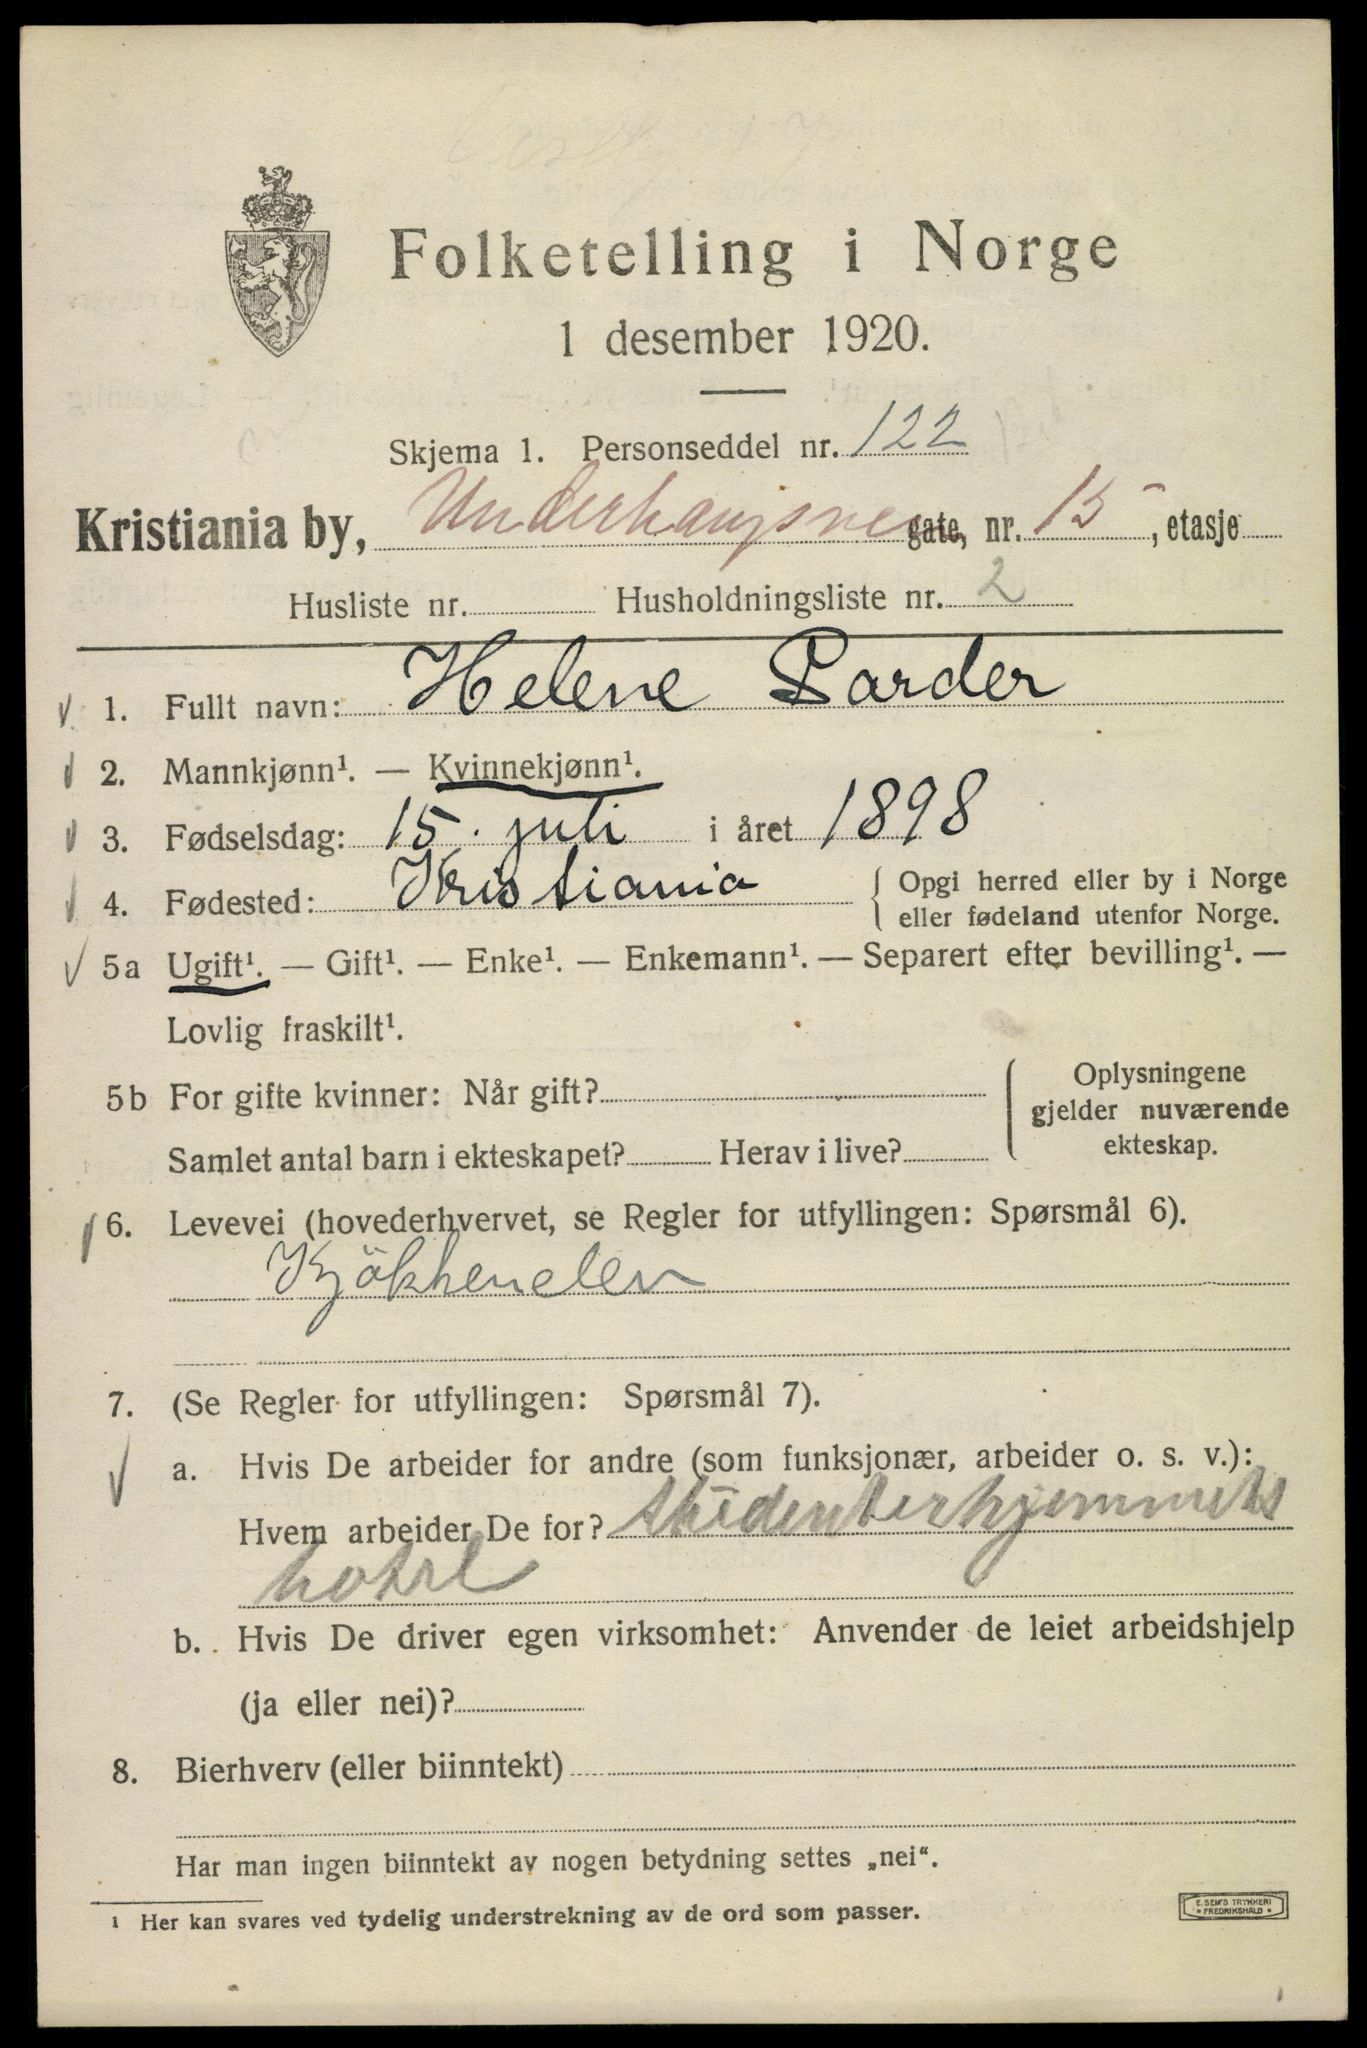 Folketelling i Norge
1 desember 1920.
Skjema 1. Personseddel nr. 122
Kristiania by, Underhaugsvei gate, nr. 15, etasje
Husliste nr. Husholdningsliste nr. 2
1. Fullt navn: Helene Parder
2. Mannkjønn¹. — Kvinnekjønn¹.
3. Fødselsdag: 15. juli i året 1898
4. Fødested: Kristiania { Opgi herred eller by i Norge
eller fødeland utenfor Norge.
5a Ugift¹. — Gift¹. — Enke¹. — Enkemann¹. — Separert efter bevilling¹. —
Lovlig fraskilt¹.
5b For gifte kvinner: Når gift?
Samlet antal barn i ekteskapet? Herav i live?
Oplysningene
gjelder nuværende
ekteskap.
6. Levevei (hovederhvervet, se Regler for utfyllingen: Spørsmål 6).
Kjökkenelev
7. (Se Regler for utfyllingen: Spørsmål 7).
a. Hvis De arbeider for andre (som funksjonær, arbeider o. s. v.):
Hvem arbeider De for? Studenterhjemmets
hotel
b. Hvis De driver egen virksomhet: Anvender de leiet arbeidshjelp
(ja eller nei)?
8. Bierhverv (eller biinntekt)
Har man ingen biinntekt av nogen betydning settes „nei“.
¹ Her kan svares ved tydelig understrekning av de ord som passer.
E. SEM'S TRYKKERI
FREDRIKSHALD